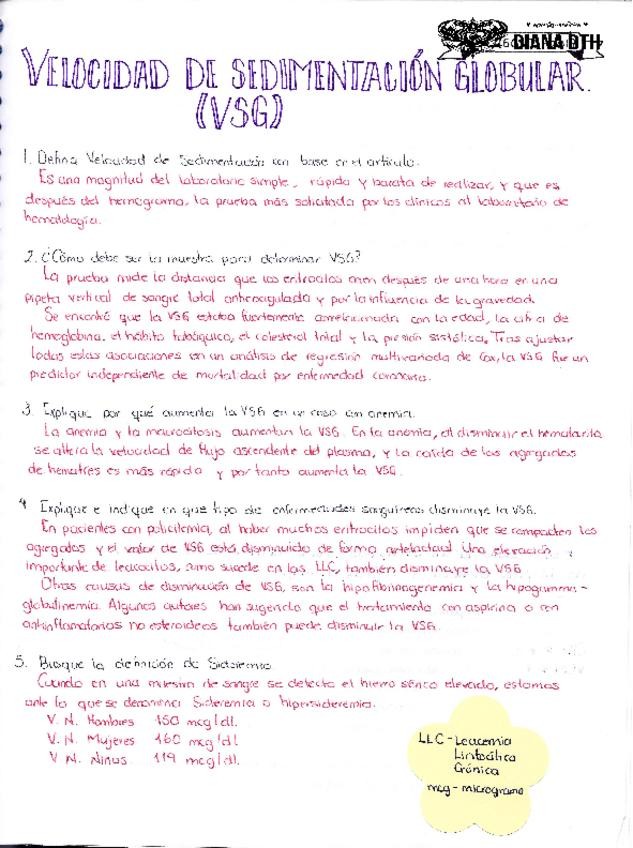 DIANA DTH
VELOCIDAD DE SEDIMENTACIÓN GLOBULAR.
(VSG)
1. Defina Velocidad de Sedimentación con base en el artículo.
Es una magnitud del laboratorio simple, rápida y barata de realizar, y que es
después del hemograma, la prueba más solicitada por los clínicos al laboratorio de
hematología.
2. ¿Cómo debe ser la muestra para determinar VSG?
La prueba mide la distancia que los eritrocitos caen después de una hora en una
pipeta vertical de sangre total anticoagulada y por la influencia de la gravedad.
Se encontró que la VSG estaba fuertemente correlacionada con la edad, la cifra de
hemoglobina, el hábito tabáquico, el colesterol total y la presión sistólica. Tras ajustar
todas estas asociaciones en un análisis de regresión multivariada de Cox, la VSG fue un
predictor independiente de mortalidad por enfermedad coronaria.
3. Explique por qué aumenta la VSG en un caso con anemia.
La anemia y la macrocitosis aumentan la VSG. En la anemia, al disminuir el hematocrito
se altera la velocidad de flujo ascendente del plasma, y la caída de los agregados
de hematíes es más rápido y por tanto aumenta la VSG.
4 Explique e indique en que tipo de enfermedades sanguíneas disminuye la VSG.
En pacientes con policitemia, al haber muchos eritrocitos impiden que se compacten los
agregados y el valor de VSG está disminuido de forma artefactual. Una elevación
importante de leucocitos, como sucede en las LLC, también disminuye la VSG
Otras causas de disminución de VSG, son la hipofibrinogenemia y la hipogamma-
globulinemia. Algunos autores han sugerido que el tratamiento con aspirina o con
antiinflamatorios no esteroideos también puede disminuir la VSG.
5. Busque la definición de Sideremia
Cuando en una muestra de sangre se detecta el hierro sérico elevado, estamos
ante lo que se denomina Sideremia o hipersideremia.
V. N. Hombres 150 mcg/dl.
V. N. Mujeres 160 mcg/dl
V. N. Niños 119 mcg/dl.
LLC - Leucemia
Linfocítica
Crónica
mcg - microgramo